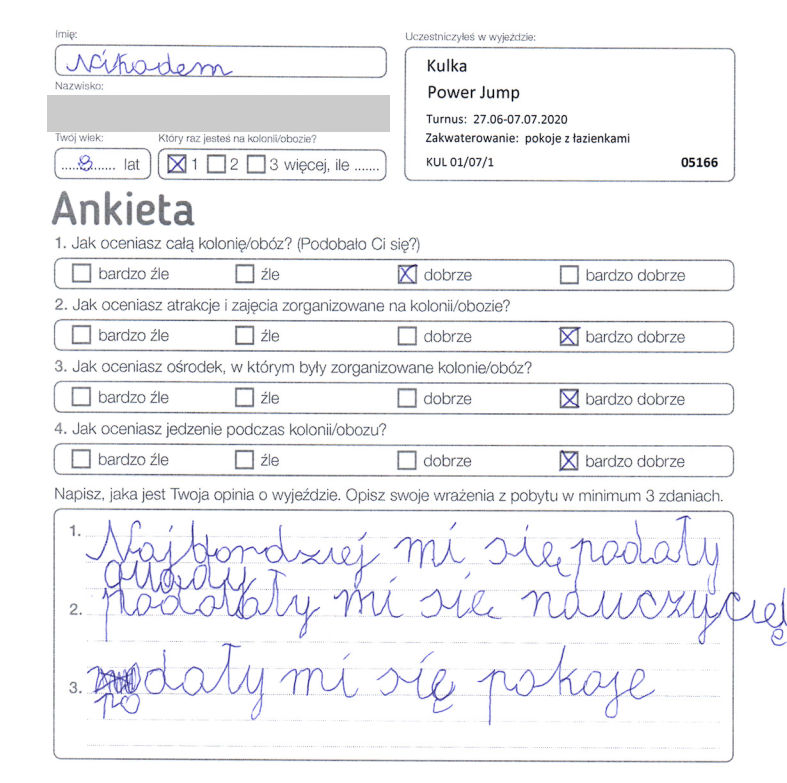 Imię:
Nikodem
Nazwisko:
Twój wiek:
.....8...... lat
Który raz jesteś na kolonii/obozie?
1 2 3 więcej, ile .......
Uczestniczyłeś w wyjeździe:
Kulka
Power Jump
Turnus: 27.06-07.07.2020
Zakwaterowanie: pokoje z łazienkami
KUL 01/07/1 05166
Ankieta
1. Jak oceniasz całą kolonię/obóz? (Podobało Ci się?)
bardzo źle źle dobrze bardzo dobrze
2. Jak oceniasz atrakcje i zajęcia zorganizowane na kolonii/obozie?
bardzo źle źle dobrze bardzo dobrze
3. Jak oceniasz ośrodek, w którym były zorganizowane kolonie/obóz?
bardzo źle źle dobrze bardzo dobrze
4. Jak oceniasz jedzenie podczas kolonii/obozu?
bardzo źle źle dobrze bardzo dobrze
Napisz, jaka jest Twoja opinia o wyjeździe. Opisz swoje wrażenia z pobytu w minimum 3 zdaniach.
1. Najbondziej mi się podały
2. mi się nauczycie
3. podały mi się pokoje